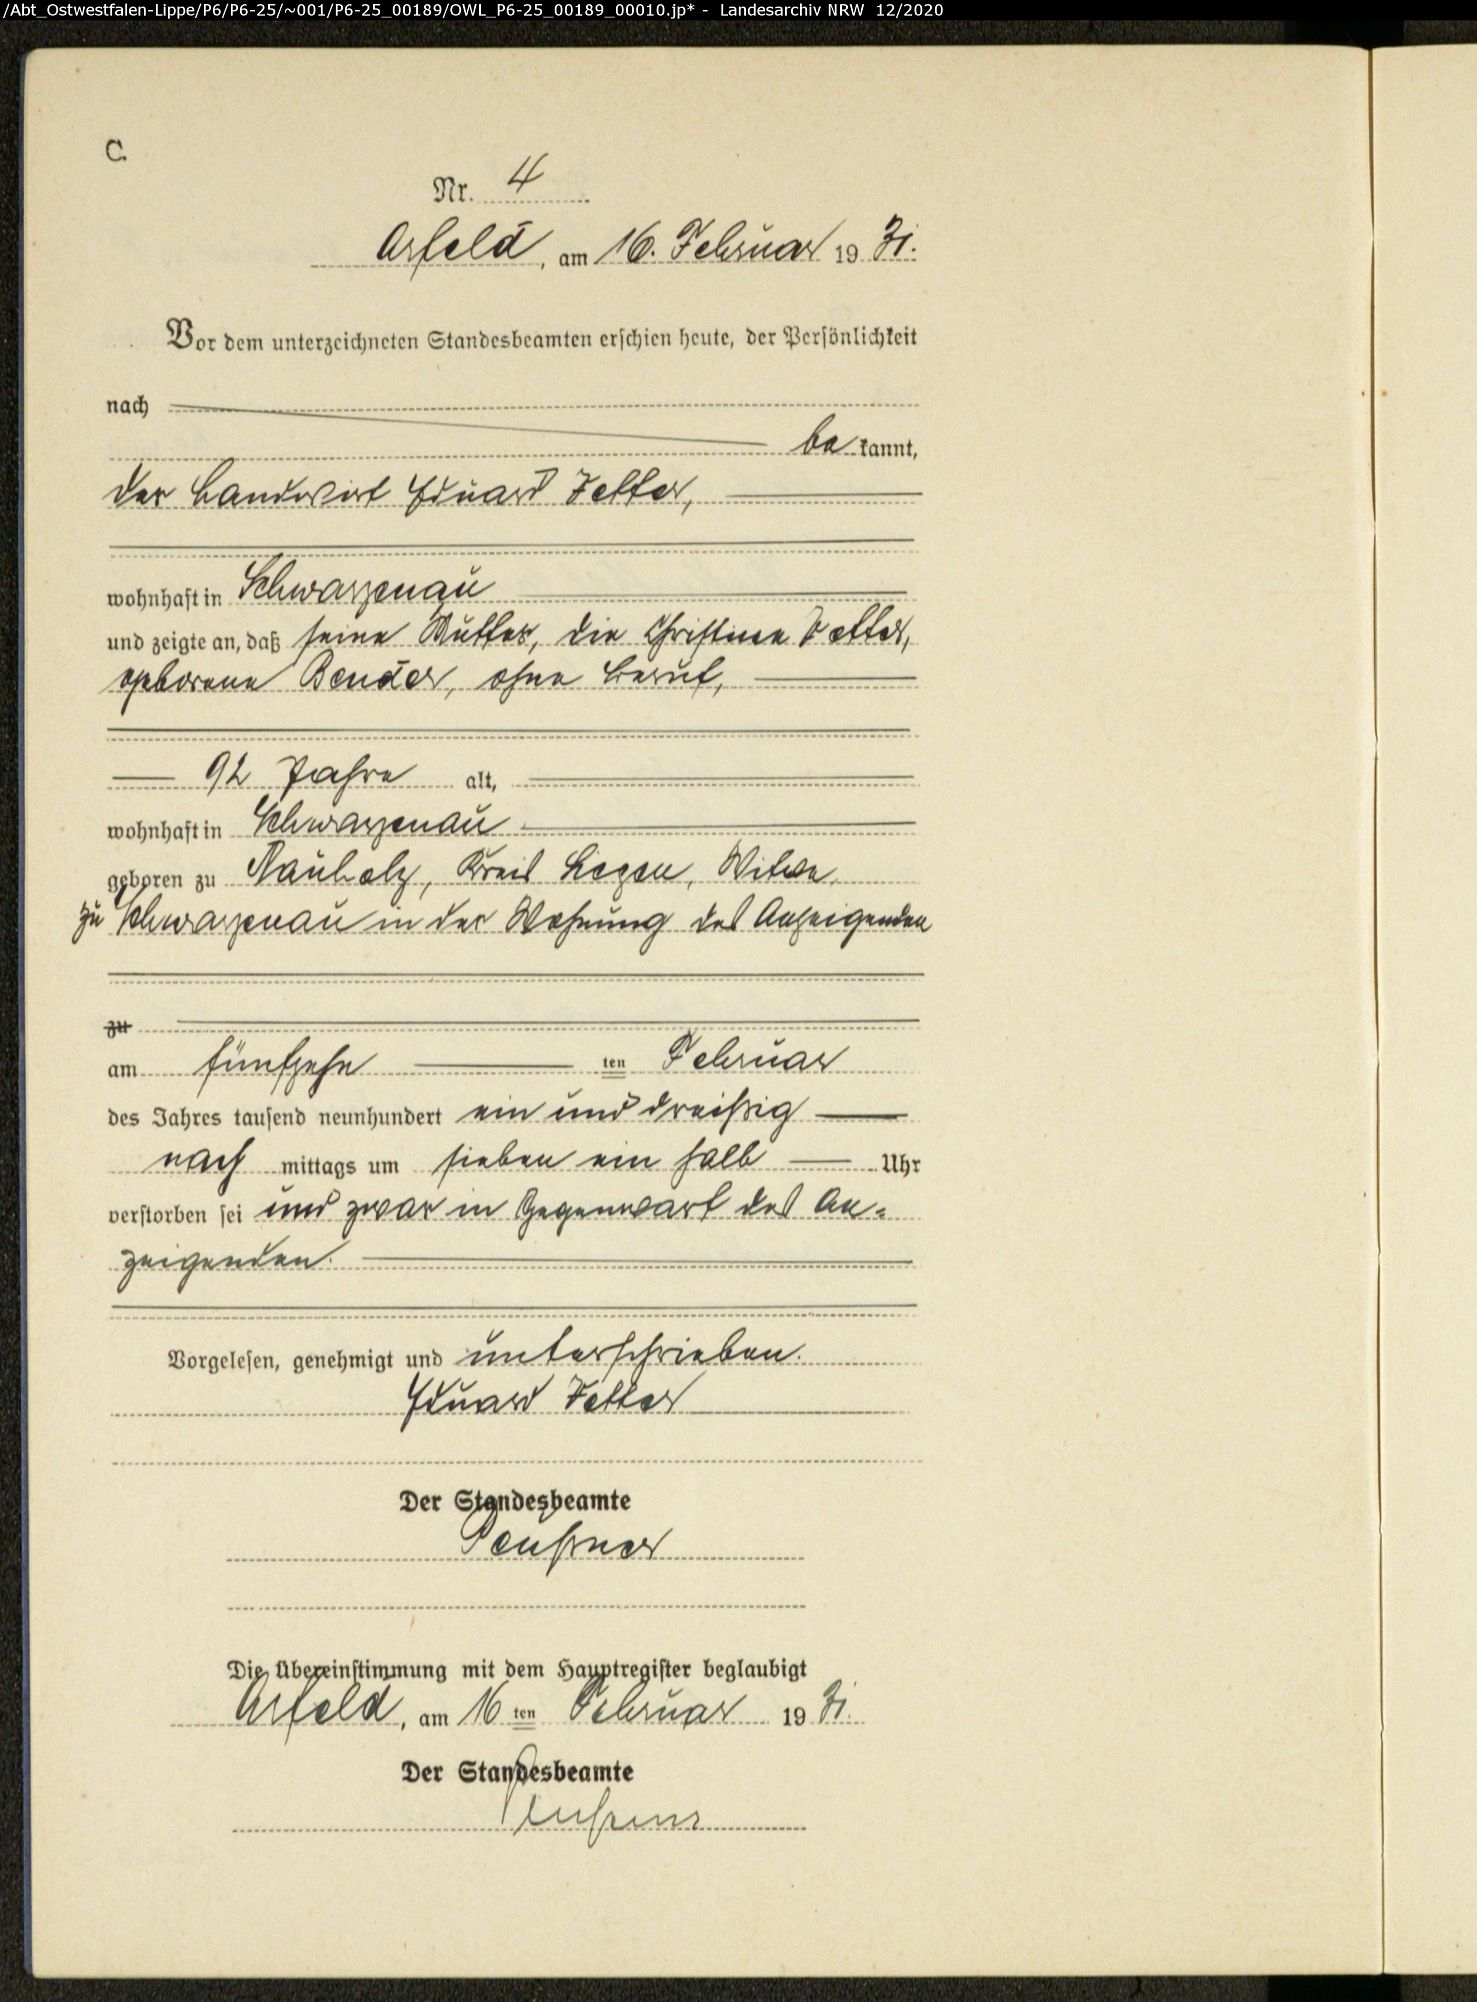 /Abt_Ostwestfalen-Lippe/P6/P6-25/~001/P6-25_00189/OWL_P6-25_00189_00010.jp* - Landesarchiv NRW 12/2020
C.
Nr. 4
Arfeld, am 16. Februar 19 31.
Vor dem unterzeichneten Standesbeamten erschien heute, der Persönlichkeit
nach
be kannt,
der Landwirt Eduard
wohnhaft in Schwarzenau
und zeigte an, daß seine Mutter, die Christine
geborene Bender, ohne Beruf,
92 Jahre alt,
wohnhaft in Schwarzenau
geboren zu Nauholz, Kreis Siegen, Witwe,
zu Schwarzenau in der Wohnung des Anzeigenden
zu
am fünfzehn ten Februar
des Jahres tausend neunhundert ein und dreißig
nach mittags um sieben ein halb Uhr
verstorben sei und zwar in Gegenwart des An-
zeigenden.
Vorgelesen, genehmigt und unterschrieben.
Eduard
Der Standesbeamte
Die Übereinstimmung mit dem Hauptregister beglaubigt
Arfeld, am 16 ten Februar 19 31.
Der Standesbeamte